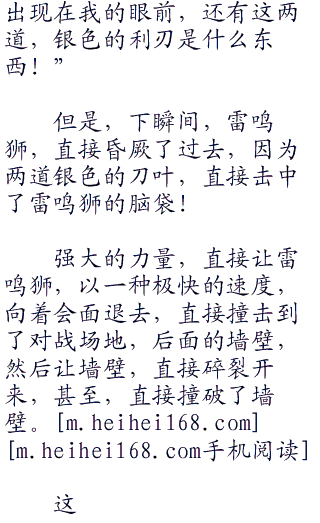 出现在我的眼前，还有这两
道，银色的利刃是什么东
西！”
但是，下瞬间，雷鸣
狮，直接昏厥了过去，因为
两道银色的刀叶，直接击中
了雷鸣狮的脑袋！
强大的力量，直接让雷
鸣狮，以一种极快的速度，
向着会面退去，直接撞击到
了对战场地，后面的墙壁，
然后让墙壁，直接碎裂开
来，甚至，直接撞破了墙
壁。[m.heihei168.com]
[m.heihei168.com手机阅读]
这